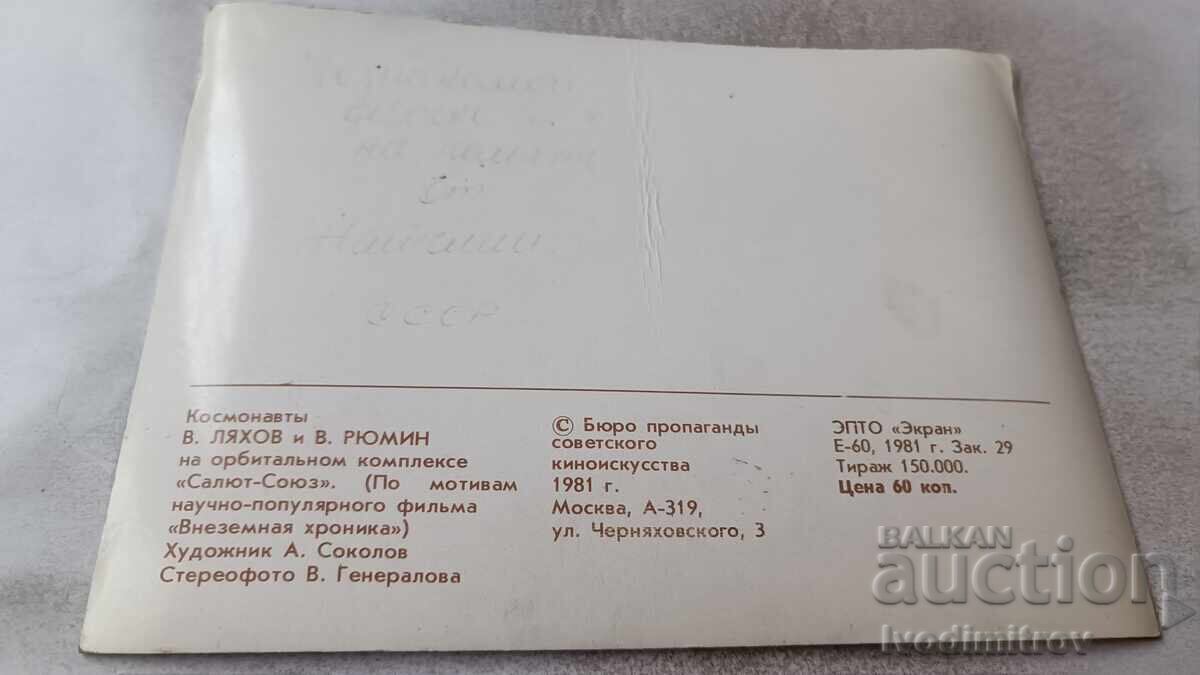 на память
от
Наташи.
СССР
Космонавты
В. ЛЯХОВ и В. РЮМИН
на орбитальном комплексе
«Салют-Союз». (По мотивам
научно-популярного фильма
«Внеземная хроника»)
Художник А. Соколов
Стереофото В. Генералова
© Бюро пропаганды
советского
киноискусства
1981 г.
Москва, А-319,
ул. Черняховского, 3
ЭПТО «Экран»
Е-60, 1981 г. Зак. 29
Тираж 150.000.
Цена 60 коп.
BALKAN
auction
Ivodimitrov